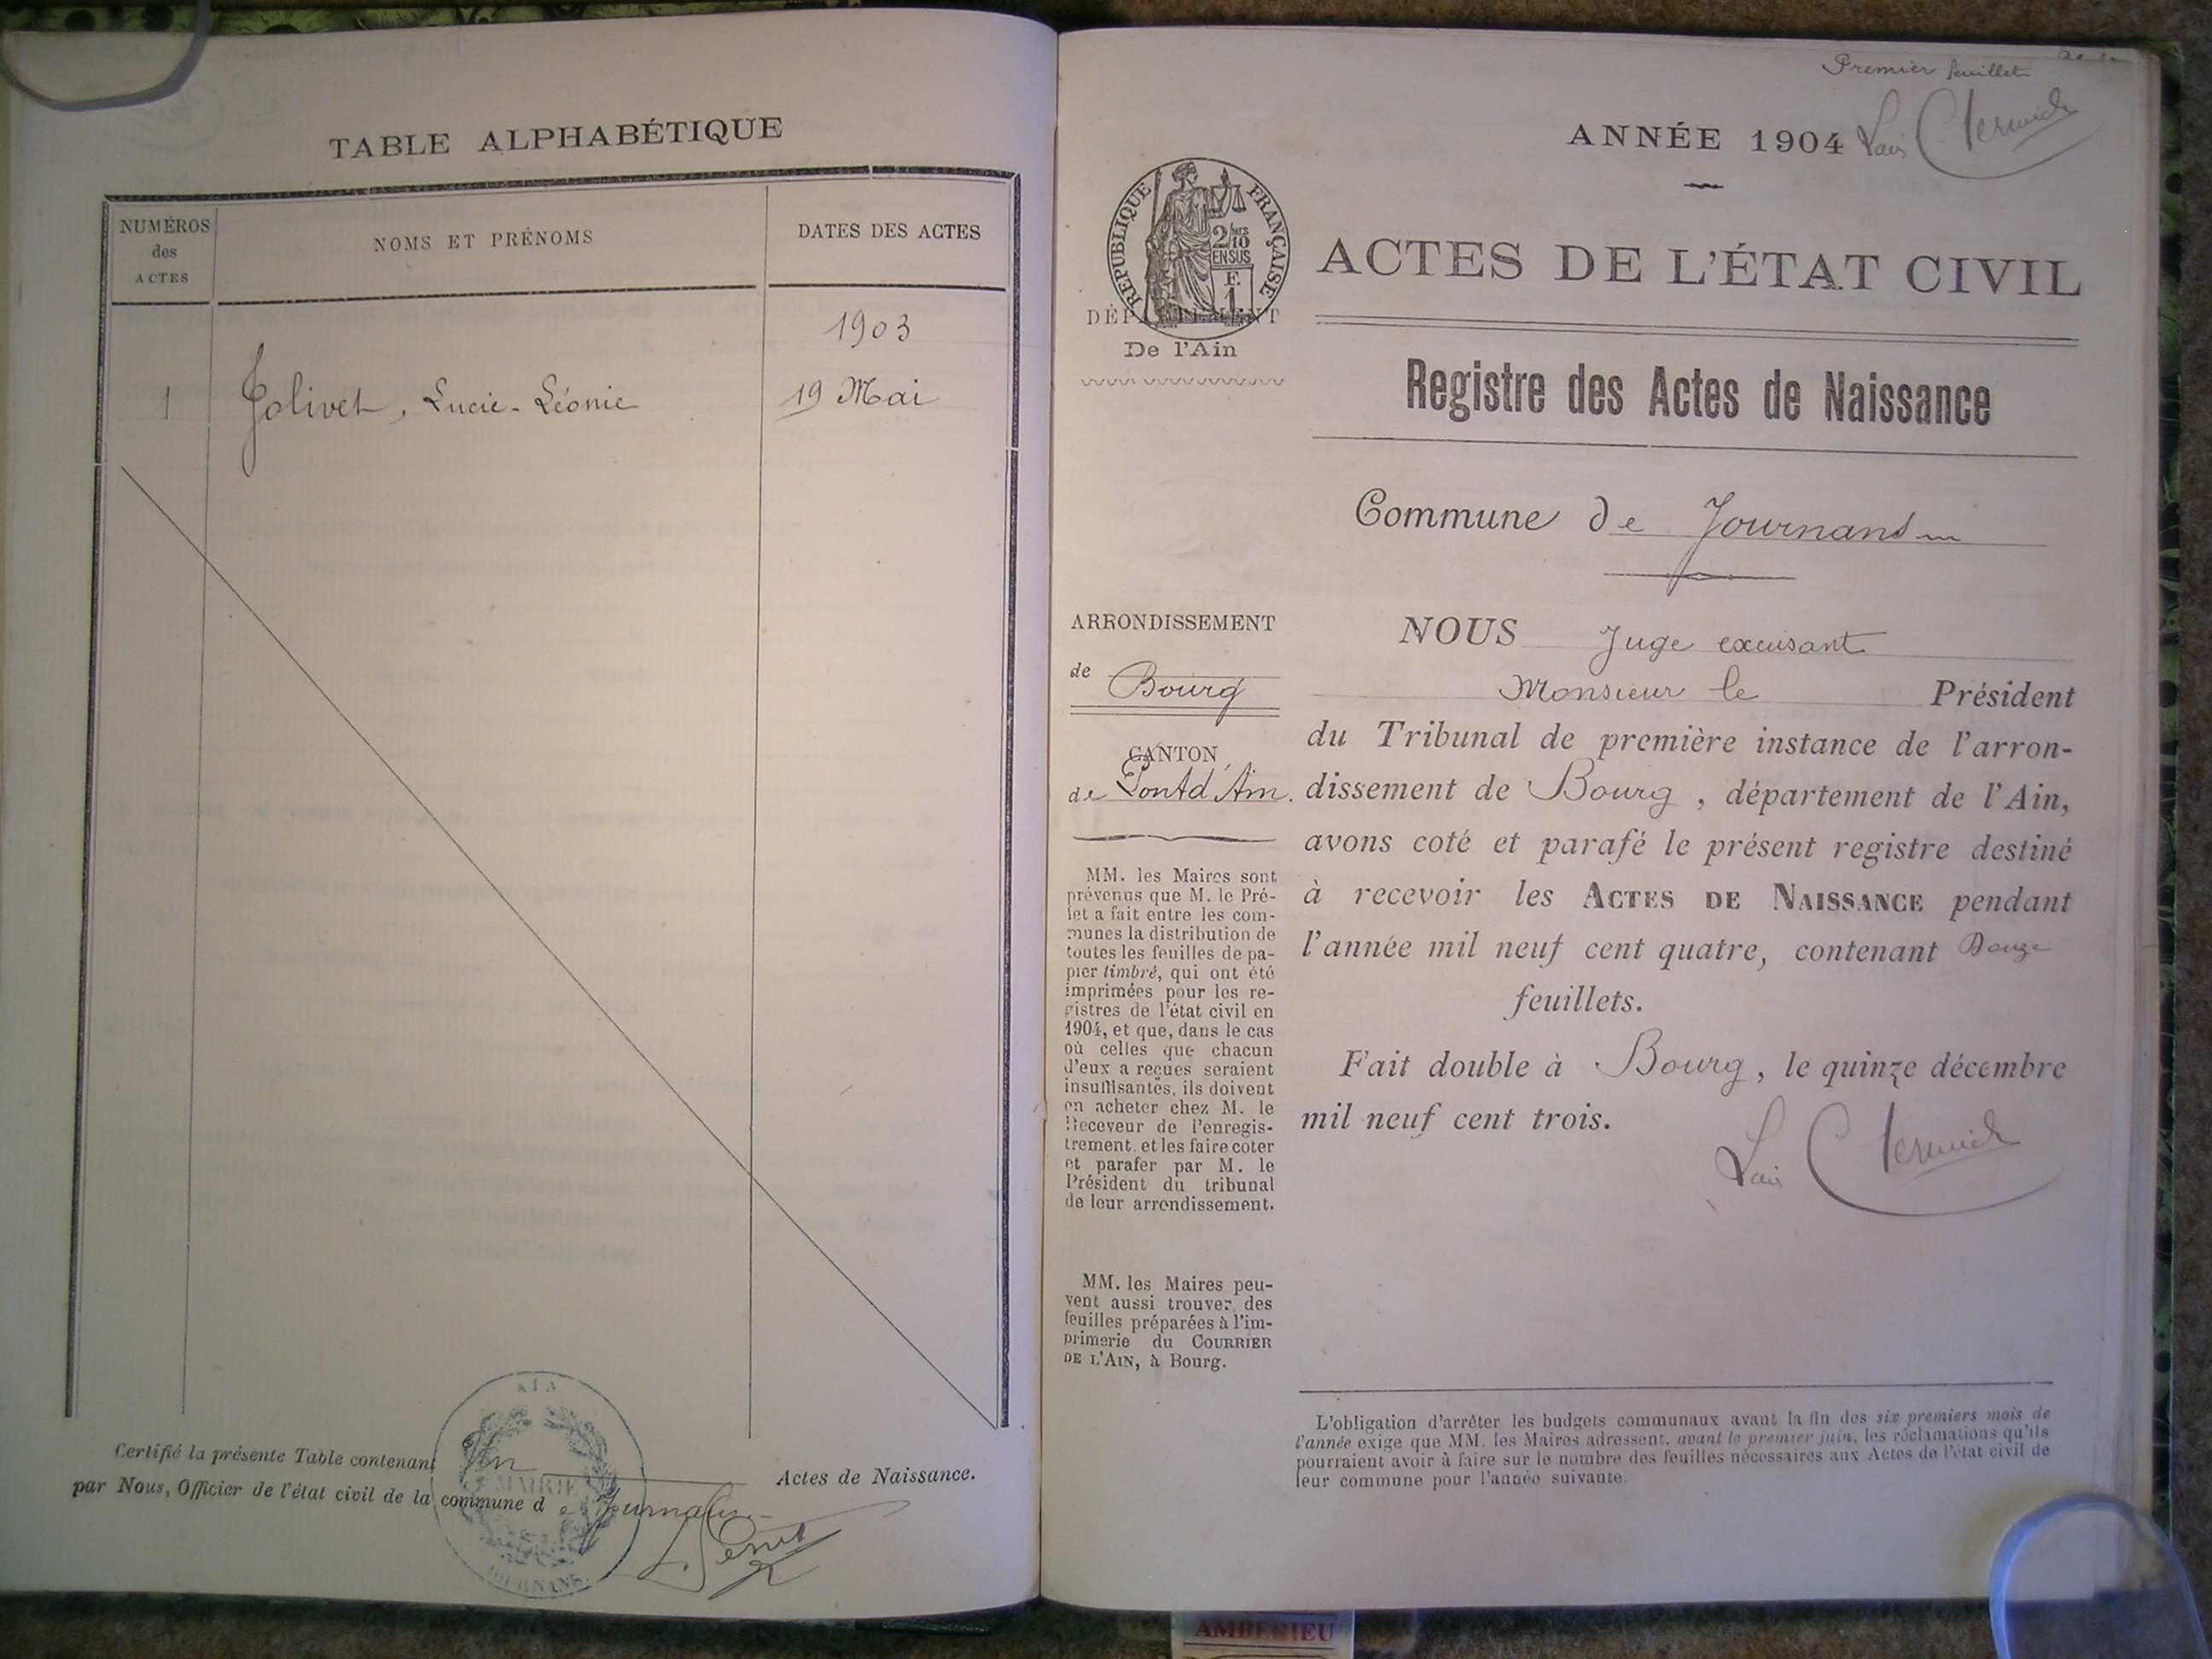 TABLE ALPHABÉTIQUE
NUMÉROS
des
ACTES
NOMS ET PRÉNOMS
DATES DES ACTES
1903
1 Jolivet, Lucie-Léonie 19 Mai
Certifié la présente Table contenant Un Actes de Naissance.
par Nous, Officier de l'état civil de la commune d e Journans
MAIRIE
JOURNANS
AIN
Premier feuillet
ANNÉE 1904
RÉPUBLIQUE FRANÇAISE
2/10
EN SUS
F.
1
DÉPARTEMENT
De l'Ain
ACTES DE L'ÉTAT CIVIL
Registre des Actes de Naissance
Commune de Journans
ARRONDISSEMENT
de Bourg
CANTON
de Pont d'Ain.
MM. les Maires sont
prévenus que M. le Pré-
fet a fait entre les com-
munes la distribution de
toutes les feuilles de pa-
pier timbré, qui ont été
imprimées pour les re-
gistres de l'état civil en
1904, et que, dans le cas
où celles que chacun
d'eux a reçues seraient
insuffisantes, ils doivent
en acheter chez M. le
Receveur de l'enregis-
trement, et les faire coter
et parafer par M. le
Président du tribunal
de leur arrondissement.
MM. les Maires peu-
vent aussi trouver des
feuilles préparées à l'im-
primerie du COURRIER
DE L'AIN, à Bourg.
NOUS Juge excusant
Monsieur le Président
du Tribunal de première instance de l'arron-
dissement de Bourg, département de l'Ain,
avons coté et parafé le présent registre destiné
à recevoir les ACTES DE NAISSANCE pendant
l'année mil neuf cent quatre, contenant Douze
feuillets.
Fait double à Bourg, le quinze décembre
mil neuf cent trois.
L'obligation d'arrêter les budgets communaux avant la fin des six premiers mois de
l'année exige que MM. les Maires adressent, avant le premier juin, les réclamations qu'ils
pourraient avoir à faire sur le nombre des feuilles nécessaires aux Actes de l'état civil de
leur commune pour l'année suivante.
AMBERIEU